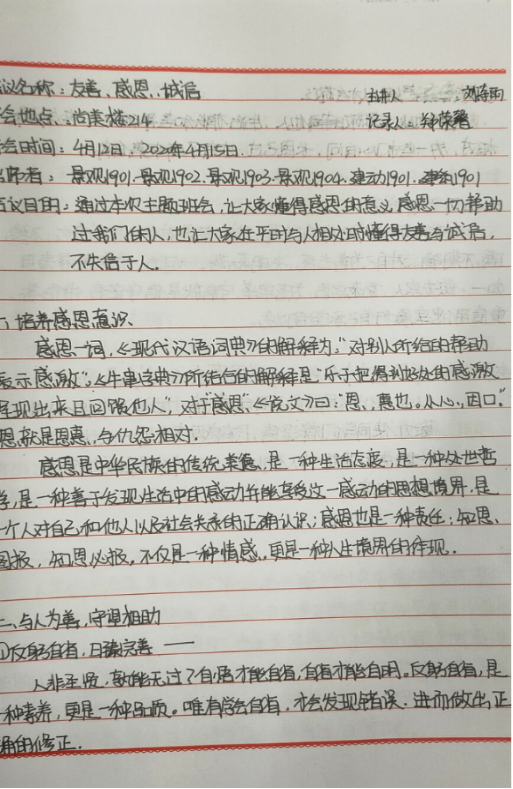 议名称：友善、感恩、诚信 主持人：刘
会地点：尚美楼214 记录人：
会时间：4月12日，2020年4月15日
席者：景观1901、景观1902、景观1903、景观1904、建动1901、1901
议目的：通过本次主题班会，让大家懂得感恩的意义，感恩一切帮助
过我们的人，也让大家在平时与人相处时懂得友善与诚信，
不失信于人。
一、培养感恩意识
感恩一词，《现代汉语词典》的解释为：“对别人所给的帮助
表示感激”，《牛津字典》所给行的解释是“乐于把得到好处的感激
呈现出来且回馈他人”，对于“感恩”《说文》曰：“恩，惠也。从心，因口”
恩就是恩惠，与仇怨相对。
感恩是中华民族的传统美德，是一种生活态度，是一种处世哲
学，是一种善于发现生活中的感动并能享受这一感动的思想境界，是
个人对自己和他人以及社会关系的正确认识；感恩也是一种责任，知恩、
图报，知恩必报，不仅是一种情感，更是一种人生境界的体现。
二、与人为善，守望相助
①反躬自省，日臻完善 ——
人非圣贤，孰能无过？自居才能自省，自省才能自明。反躬自省，是
一种素养，更是一种品质。唯有学会自省，才会发现错误，进而做出正
确的修正。